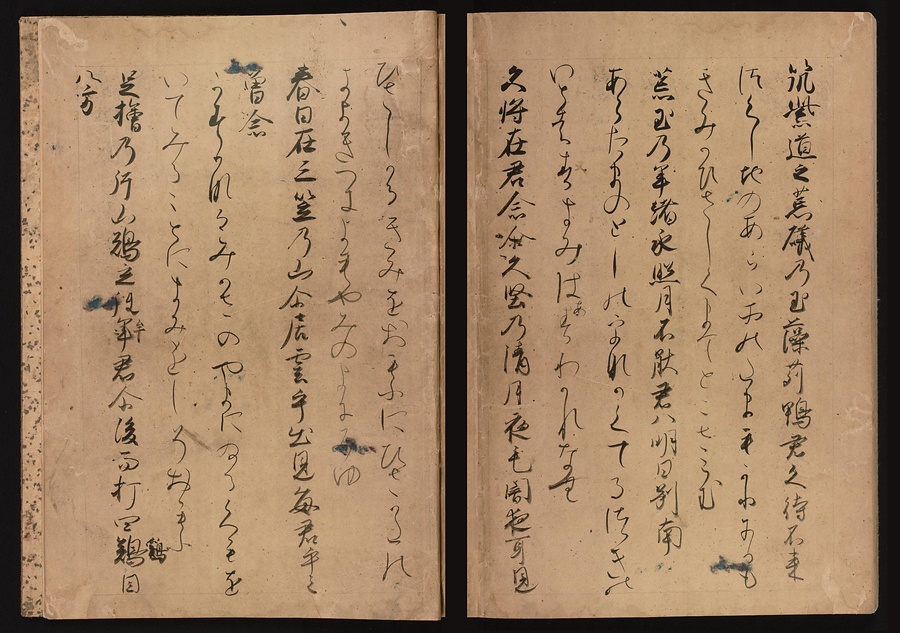 筑紫道之荒礒乃玉藻苅鴨君久待不来
つくし地のあらいそのたまもかるかも
きみかひさしくまてと
荒玉乃年緒永照月不猒君八明日別南
あらたまのとしのをなかくてるつきの
きみはあすわかれなむ
久将在君念尓久堅乃清月夜毛闇夜耳見
ひさしかるきみをおもふにひさかたの
きよきつきよもやみのよにみゆ
春日在三笠乃山尓居雲乎出見毎君乎之
曽念
かすかなるみかさのやまにゐるくもを
いてみることにきみをしそおもふ
足檜乃片山鶏立徃牟君尓後而打四鶏目
八方